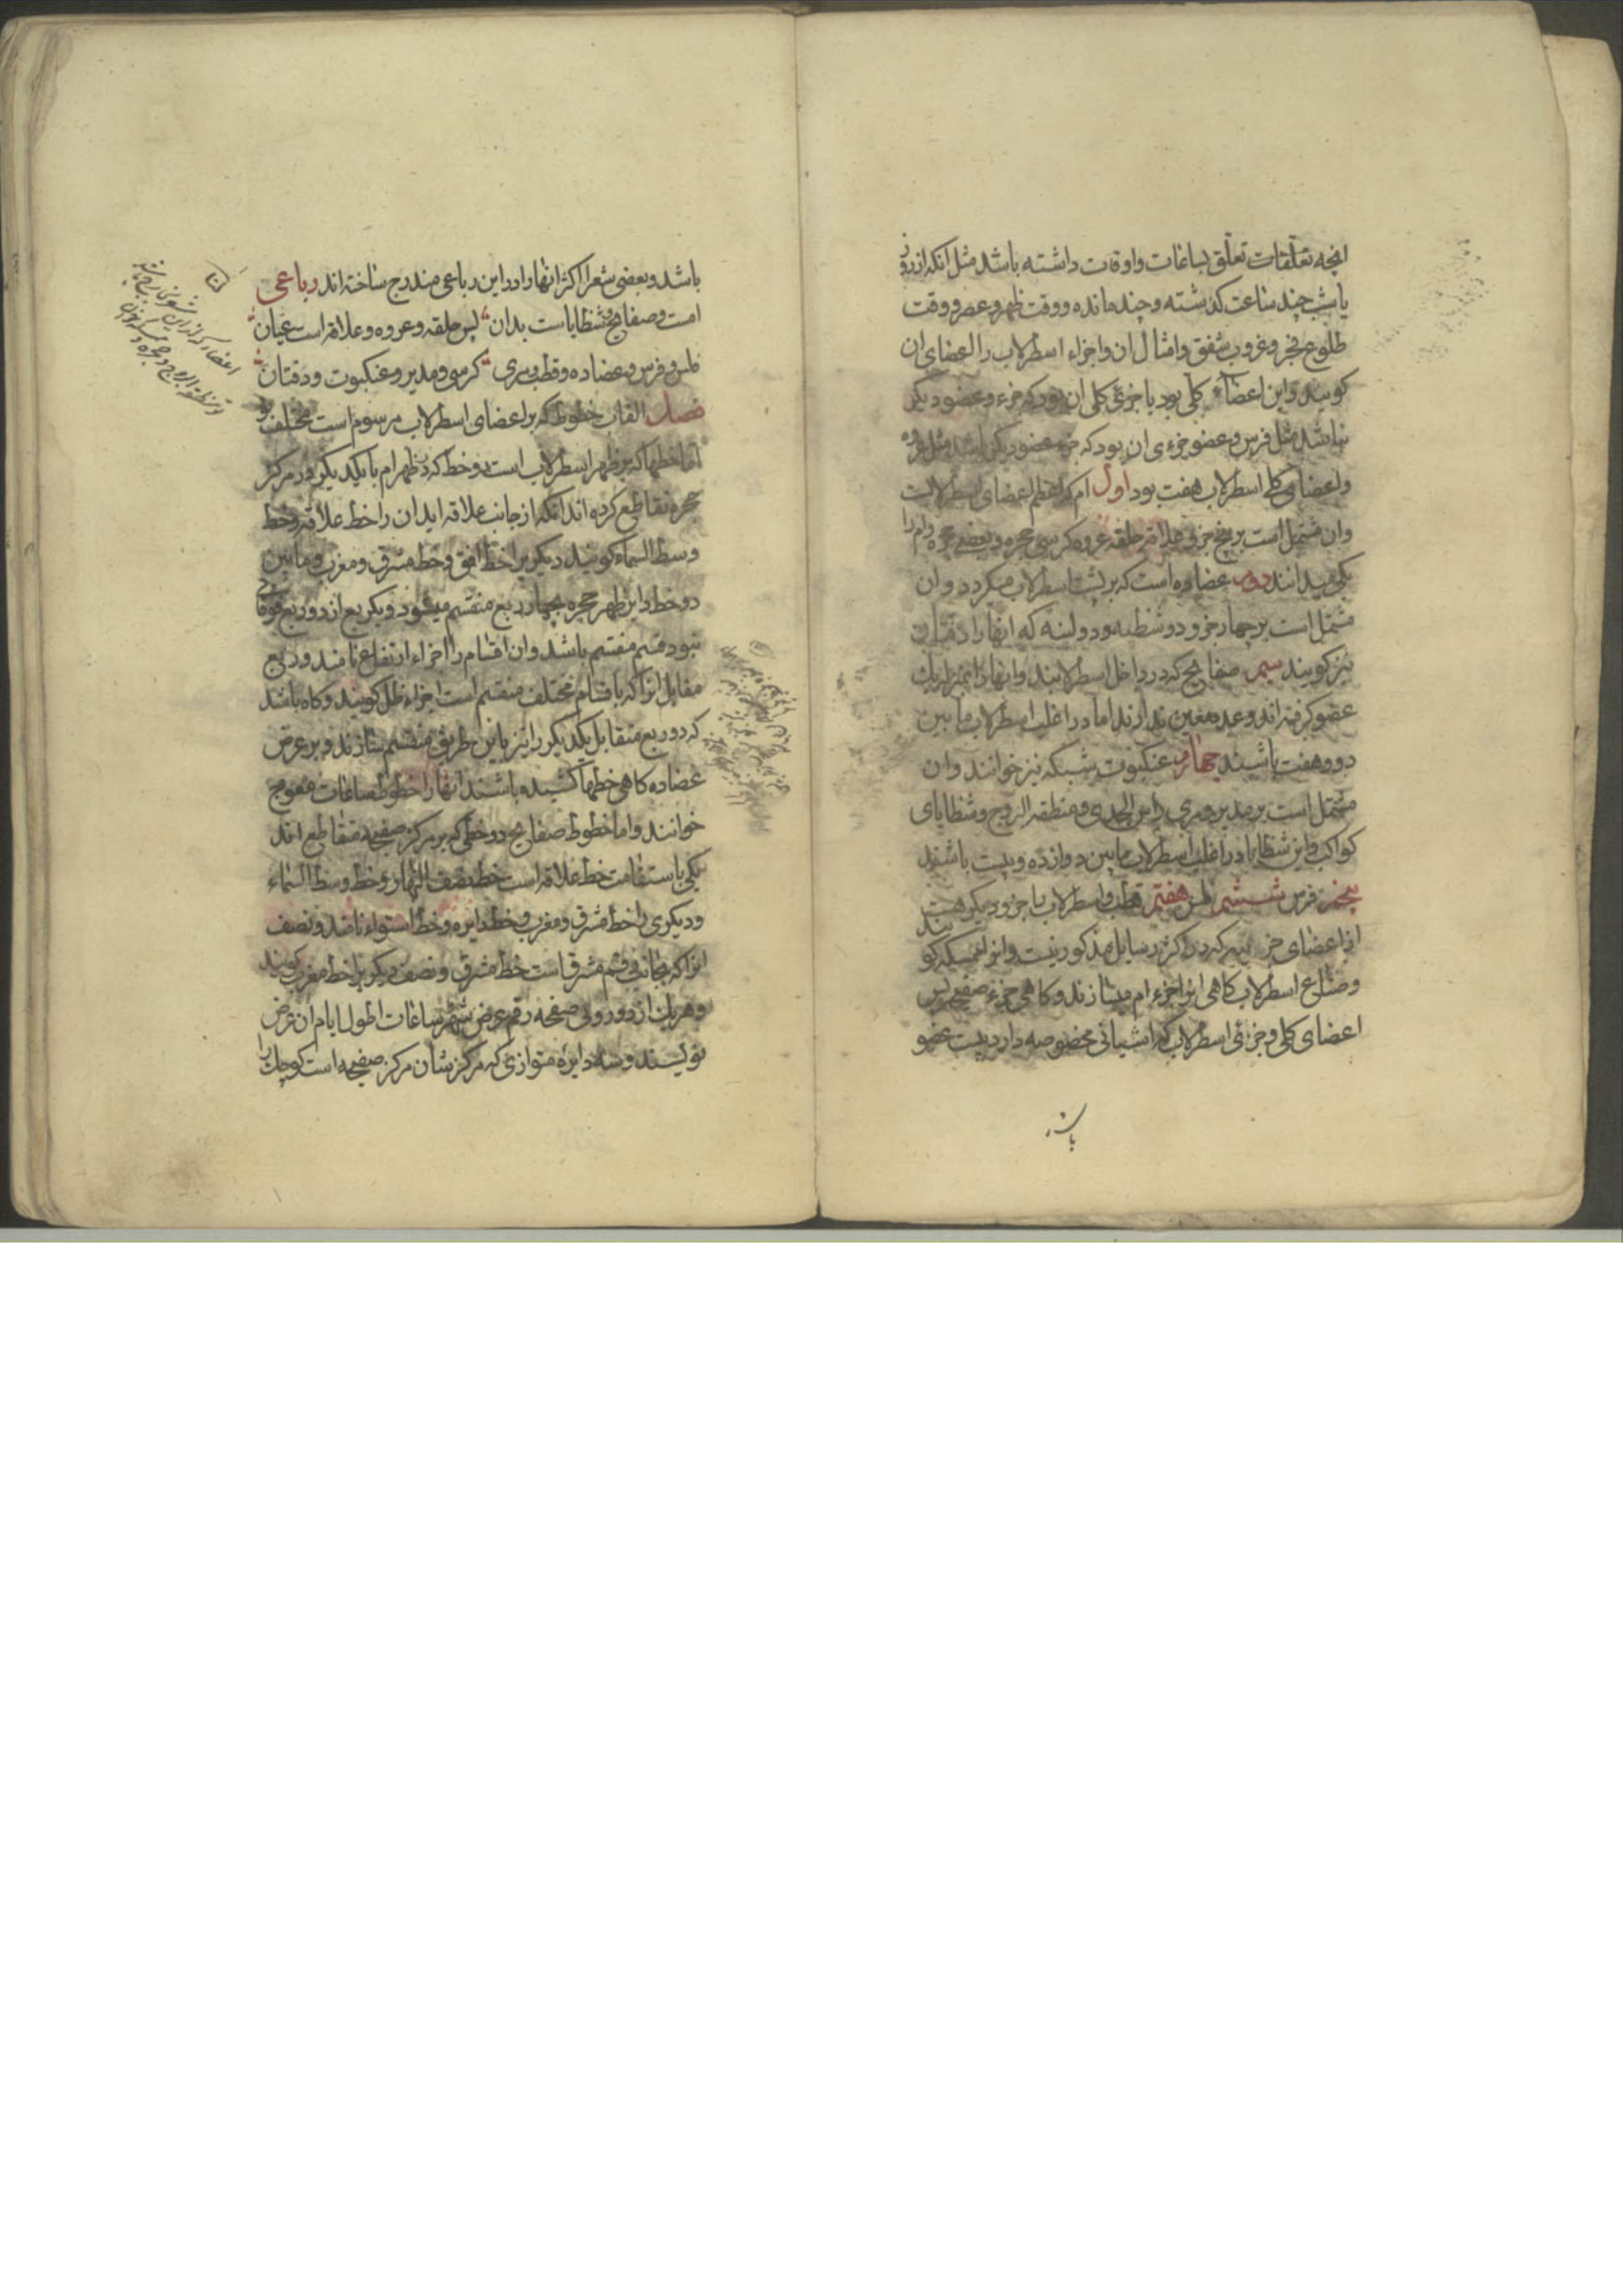 انچه تعلقات تعلق بساعات واوقات داشته باشد مثل انکه از روز
یا شب چند ساعت کذشته و چند مانده و وقت ظهر و عصر و وقت
طلوع فجر و غروب شفق وامثال ان واجزاء اسطرلاب را اعضای ان
کویند واین اعضاء کلی بود یا جزئی کلی ان بود که جزء عضو دیکر
نباشد مثل فرس و عضو جزءی ان بود که جزء عضو دیکر باشد مثل عروه
واعضای کلی اسطرلاب هفت بود اول ام که اعظم اعضای اسطرلابست
وان مشتمل است بر پنج جزو علاقه حلقه عروه کرسی حجره و بعضی حجره و ام را
یکی میدانند دوم عضاده است که بر پشت اسطرلاب میکردد و ان
مشتمل است بر چهار جزو دو شظیه و دو لبنه که انها را دفتان
نیز کویند سیم صفایح که در داخل اسطرلابند وانها را بمنزله یک
عضو کرفته اند وعدد معین ندارند اما در اغلب اسطرلاب ما بین
دو و هفت باشند چهارم عنکبوت و شبکه نیز خوانند و ان
مشتمل است بر مدیر و مری راس الجدی و منطقه البروج و شظایای
کواکب واین شظایا در اغلب اسطرلاب ما بین دوازده و بیست باشند
پنجم فرس ششم فلس هفتم قطب و اسطرلاب را جزو دیکر هست
از اعضای جزئیه که در اکثر رسایل مذکور نیست وانرا ممسکه کویند
وصناع اسطرلاب کاهی انرا جزء ام میسازند و کاهی جزء صفیحه پس
اعضای کلی و جزئی اسطرلاب که اشیائی مخصوصه دارد بیست عضو
باشد
باشد و بعضی شعرا اکثر انها را در این رباعی مندرج ساخته اند رباعی
امست و صفایح و شظایاست بدان پس حلقه و عروه و علاقه است عیان
فلس و فرس و عضاده و قطب و مری کرسی و مدیر و عنکبوت و دفتان
فصل القاب خطوط که بر اعضای اسطرلاب مرسوم است مختلف بود
اما خطها که بر ظهر اسطرلاب است دو خط که در ظهر ام با یکدیکر در مرکز
حجره تقاطع کرده اند انکه از جانب علاقه اید ان را خط علاقه و خط
وسط السماء کویند دیکر را خط افق و خط مشرق و مغرب و مابین
دو خط این ظهر حجره بچهار ربع منقسم میشود و یکربع از دو ربع فوقانی
بنود قسم منقسم باشد وان اقسام را اجزاء ارتفاع نامند و ربع
مقابل انرا که باقسام مختلف منقسم است اجزاء ظل کویند و کاه باشد
که دو ربع متقابل یکدیکر را نیز باین طریق منقسم سازند و بر عرض
عضاده کاهی خطها کشیده باشند انها را خطوط ساعات معوج
خوانند واما خطوط صفایح دو خطی که بر مرکز صفیحه متقاطع اند
یکی باستقامت خط علاقه است خط نصف النهار و خط وسط السماء
و دیکری را خط مشرق و مغرب و خط دایره و خط استواء نامند و نصف
انرا که بجانب قسم مشرق است خط مشرق و نصف دیکر را خط مغرب کویند
و هر یک از دو روی صفحه رقم عرض شهر و ساعات اطول ایام ان عرض
نویسند و سه دایره متوازی که مرکز شان مرکز صفیحه است کوچک را